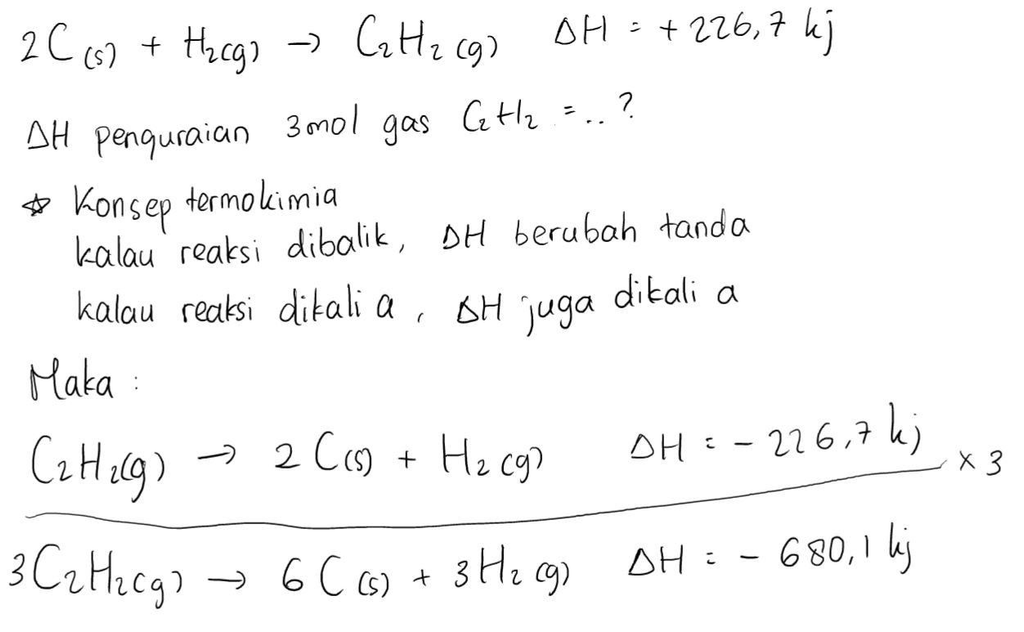 2C(s) + H₂(g) → C₂H₂(g) ΔH = +226,7 kj
ΔH penguraian 3 mol gas C₂H₂ = .. ?
☆ Konsep termokimia
kalau reaksi dibalik, ΔH berubah tanda
kalau reaksi dikali a, ΔH juga dikali a
Maka :
C₂H₂(g) → 2C(s) + H₂(g) ΔH = - 226,7 kj x 3
3C₂H₂(g) → 6C(s) + 3H₂(g) ΔH = - 680,1 kj